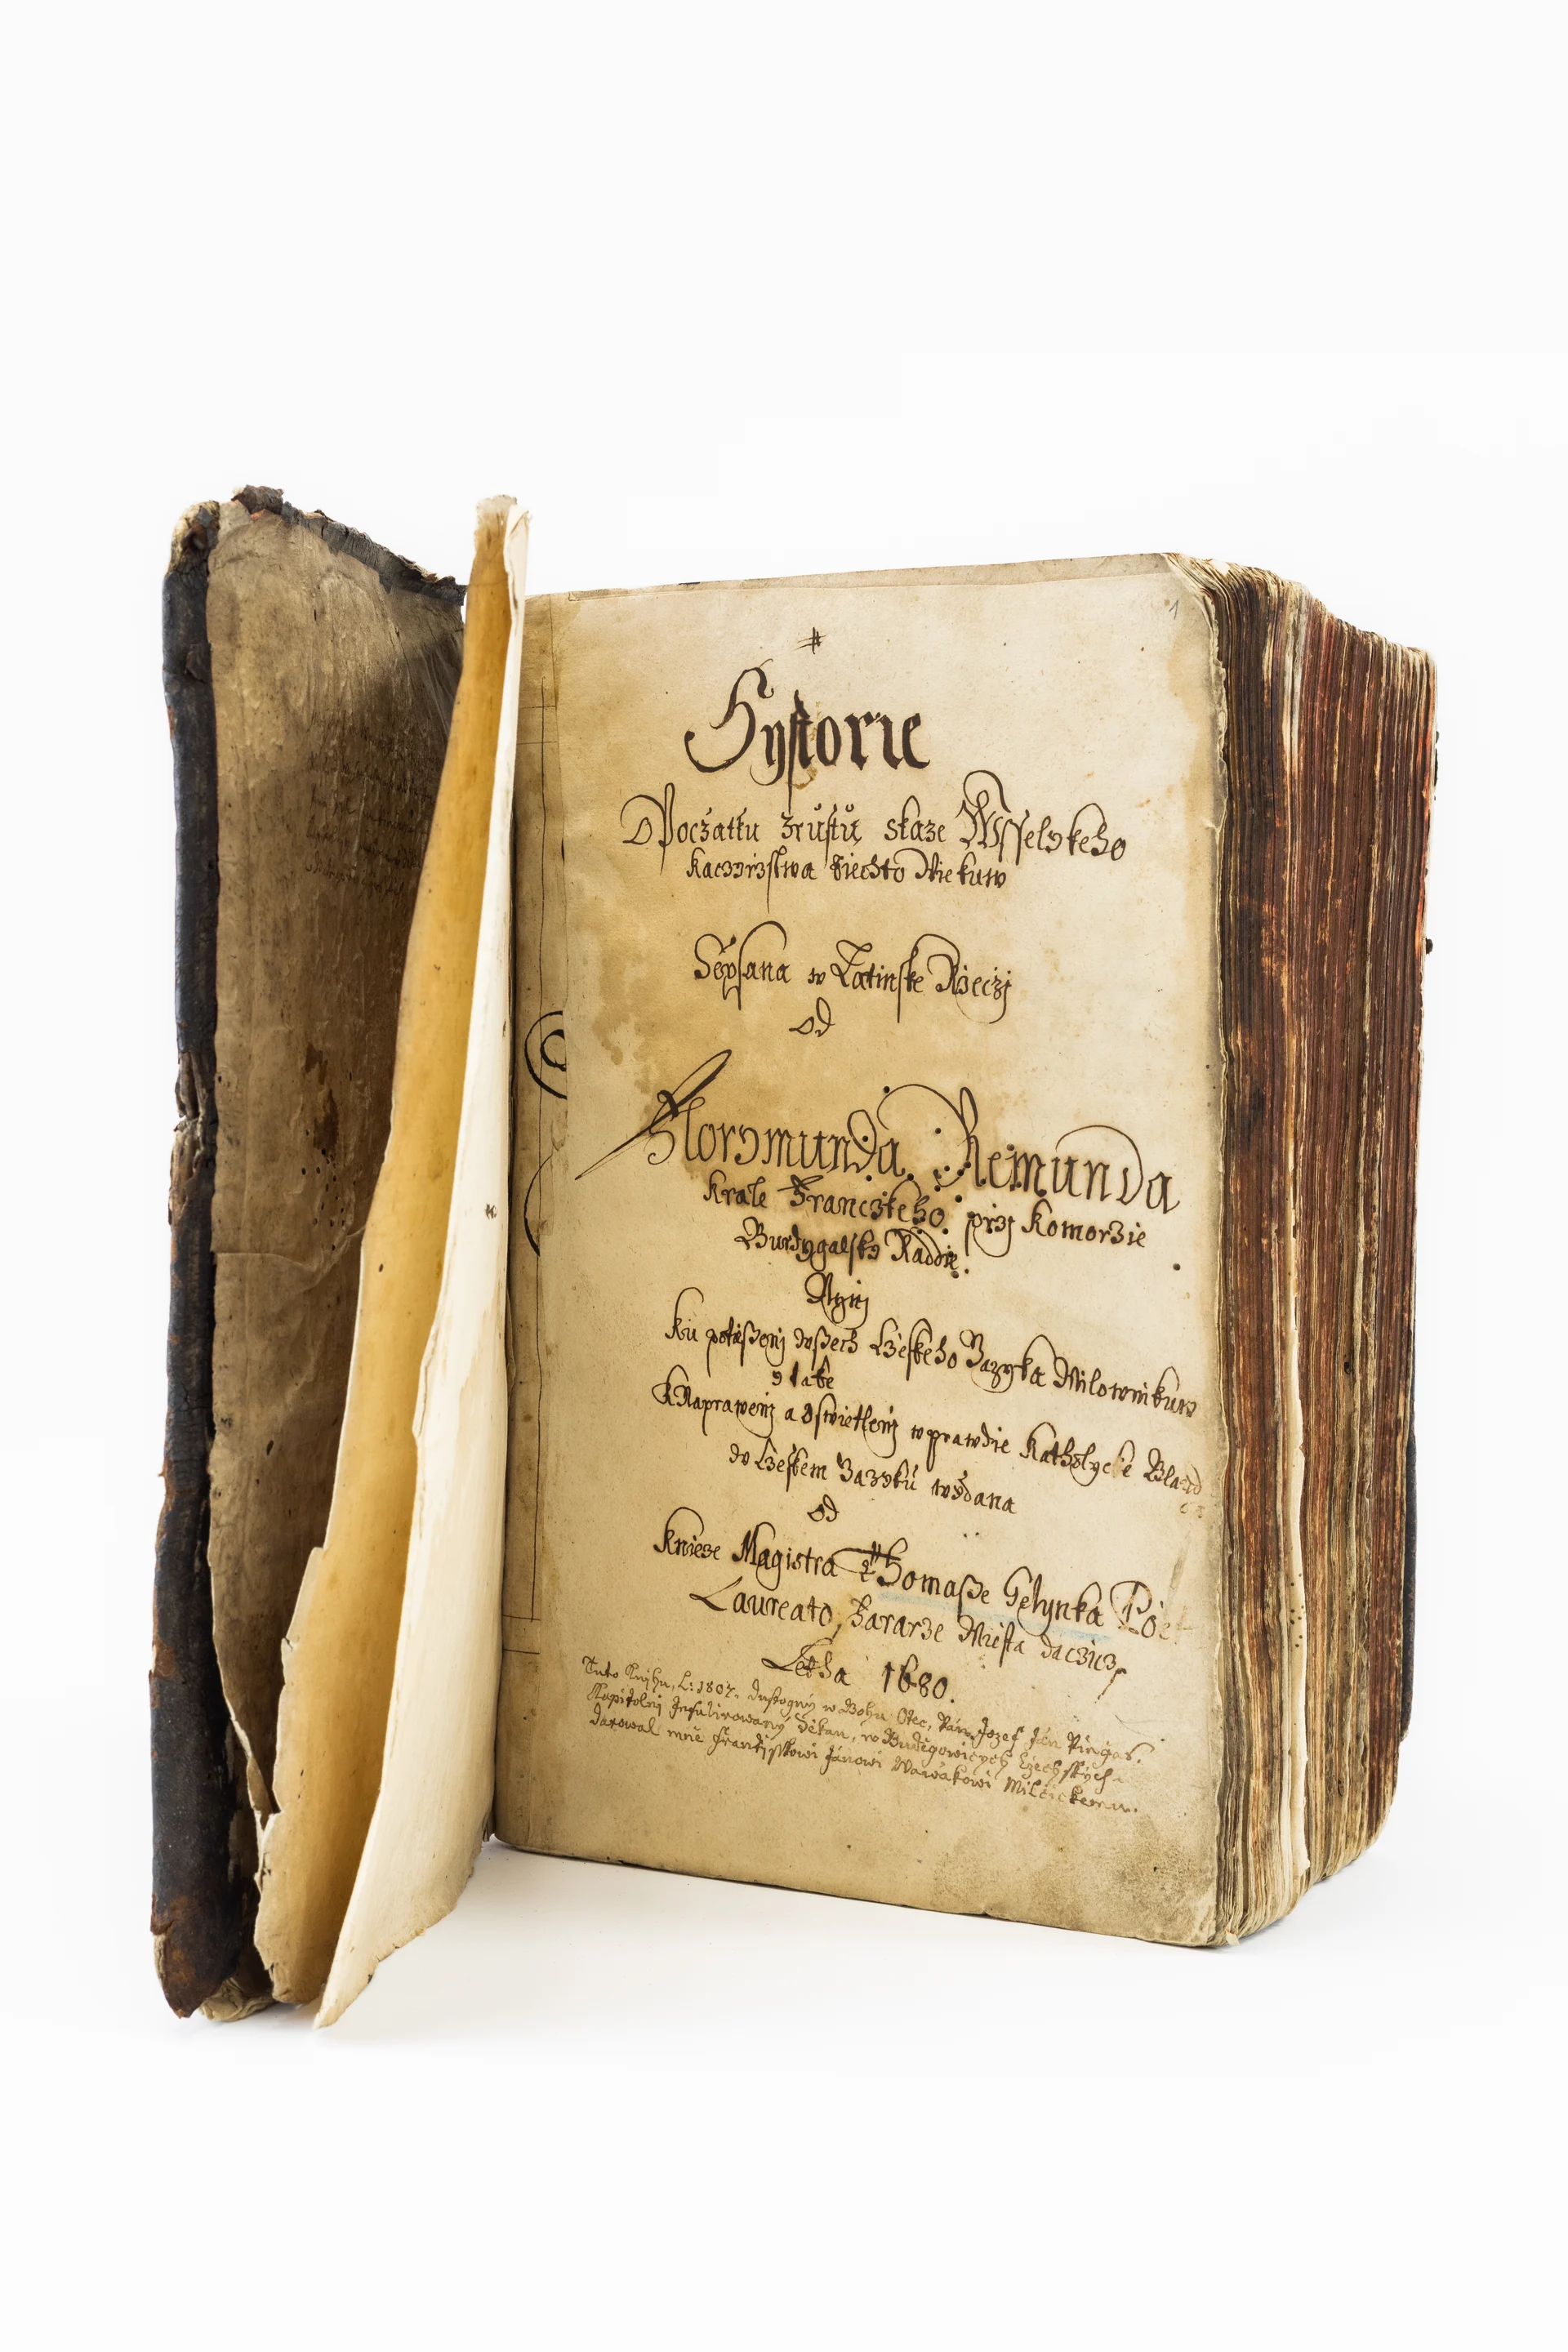 1
Hystorie
O Poczatku zrůstů skaze Wsselykeho
kaczyrzstwa tiechto Wiekuw
Sepsana w Latinske Rzeczj
od
Florymunda Remunda
krale Franczkeho przj komorzie
Burdygalsky Raddie
Nynj
ku potiessenj wssech Czeskeho Jazyka Milownikuw
k Naprawenj a Oswietlenj w prawdie Katholycke
w Czeskem Jazyku wydana
od
knieze Magistra Thomasse Gelynka Poet
Laureato, Fararze Miesta Daczicz
Letha 1680.
Tuto Knjhu, L: 1807. Dustogny w Bohu Otec, Pán Jozef Ján Pingas.
Kapitolnj Infulirowaný Dékan, w Budegowicych Czechských
darowal mně Frantisskowi Janowi Wawákowi Milčickemu.